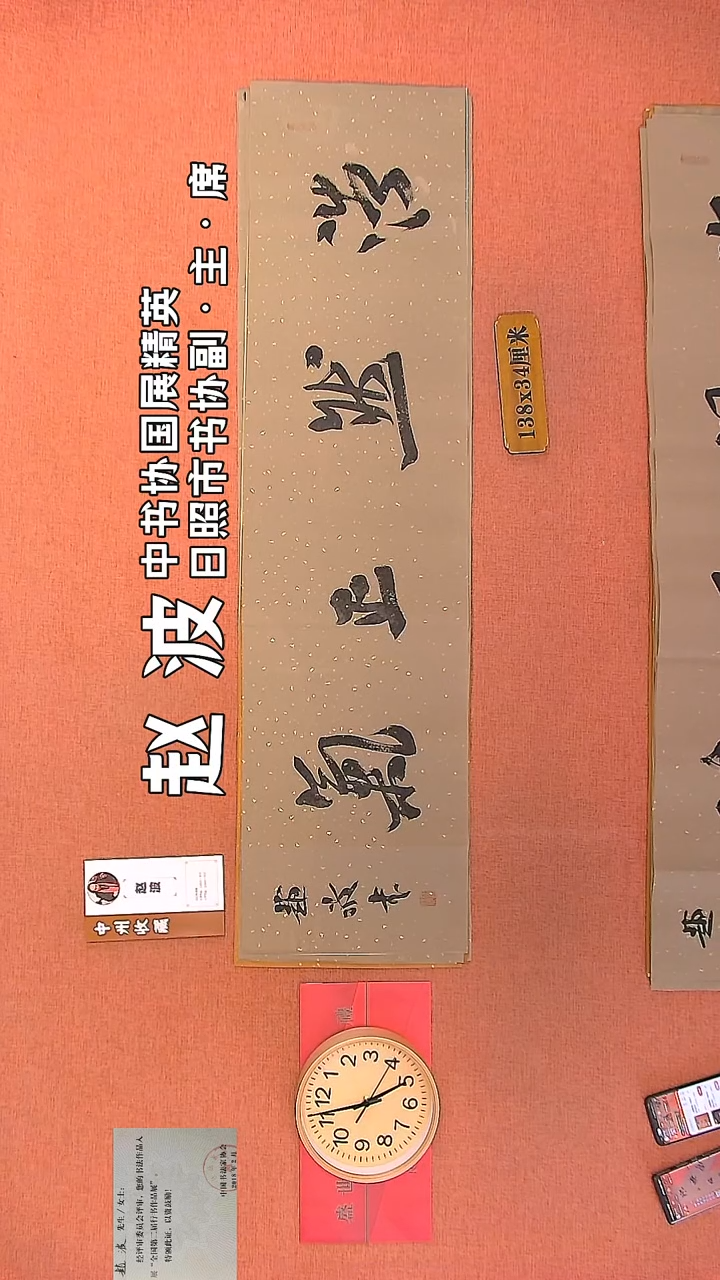 赵波
中书协国展精英
日照市书协副·主·席
浩然正氣
趙波书
138x34厘米
赵波
中州收藏
盛世
12
1
2
3
4
5
6
7
8
9
10
11
先生/女士:
经评审委员会评审，您的书法作品入
展“全国第二届行书作品展”。
特颁此证，以资鼓励！
中国书法家协会